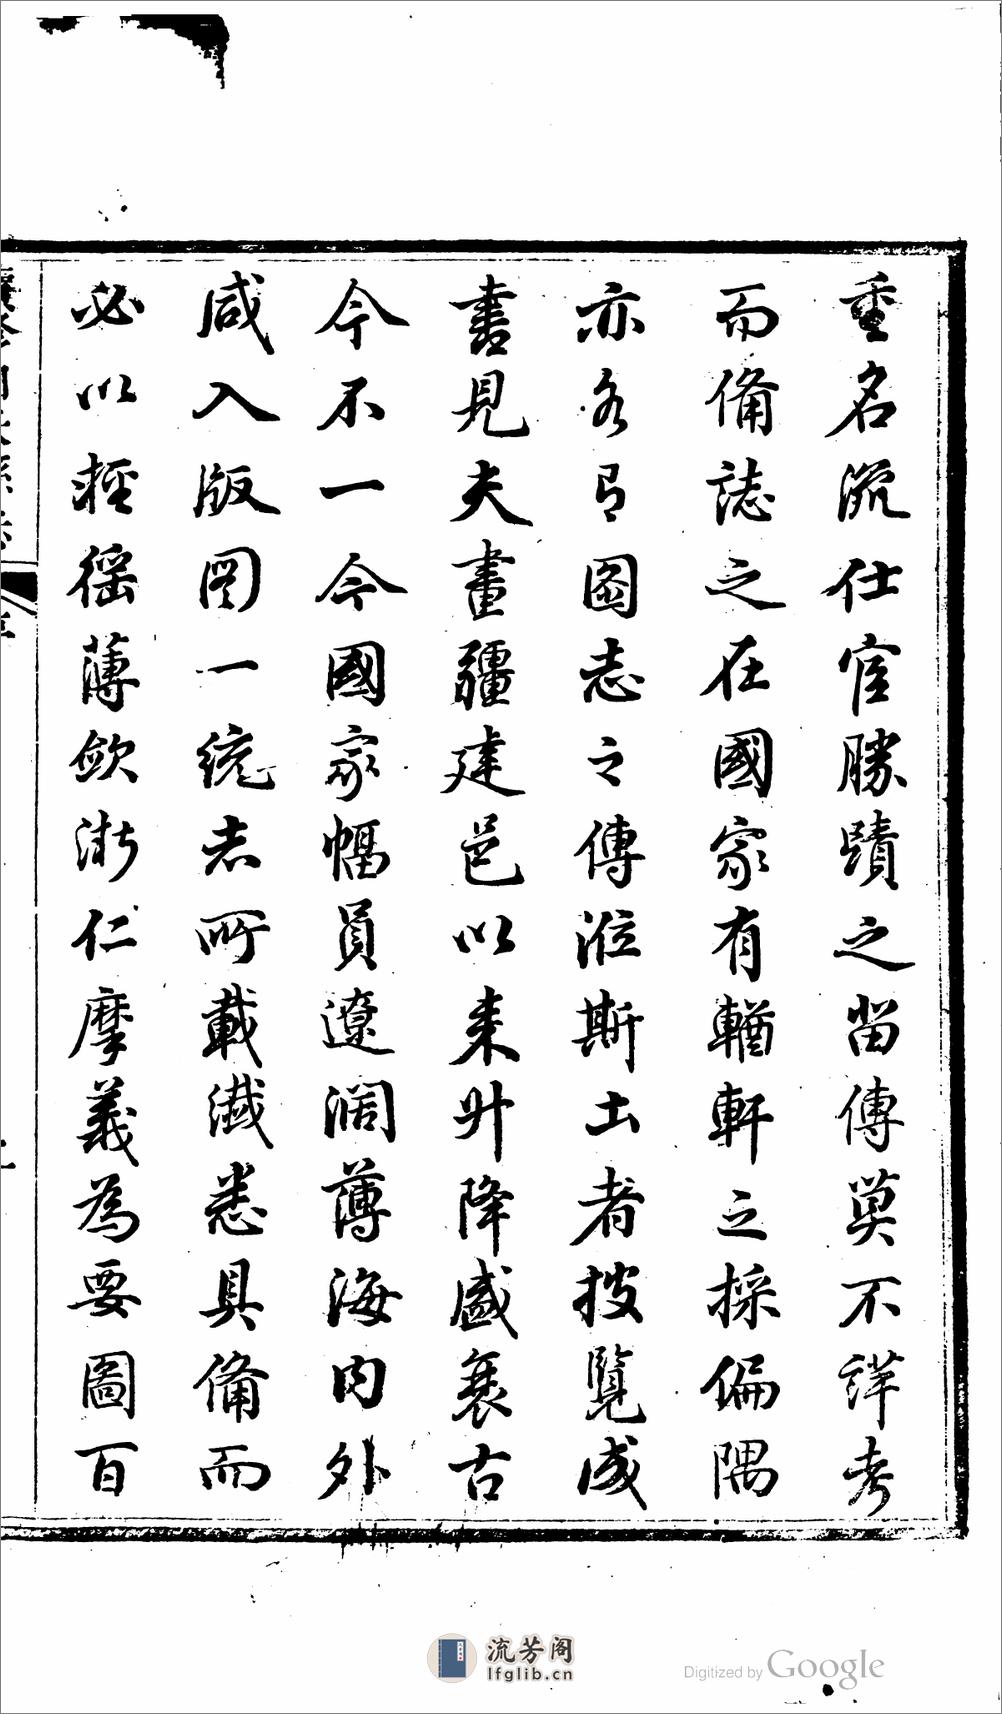 重名流仕宦勝蹟之留傳莫不詳考
而備誌之在國家有輶軒之採偏隅
亦各有圖志之傳涖斯土者披覽成
書見夫畫疆建邑以來升降盛衰古
今不一今國家幅員遼濶薄海内外
咸入版圖一統志所載纖悉具備而
必以輕徭薄斂漸仁摩義為要圖百
序
流芳阁
lfglib.cn
Digitized by Google